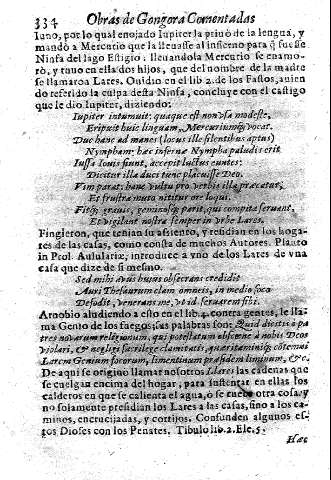 334 Obras de Gongora Comentadas
Iuno, por lo qual enojado Iupiter la priuò de la lengua, y
mandò a Mercurio que la lleuasse al infierno para q̃ fuesse
Ninfa del lago Estigio: lleuandola Mercurio se enamo-
rò, y tuuo en ella dos hijos, que del nombre de la madre
se llamaron Lares. Ouidio en el lib 2. de los Fastos, auien
do referido la culpa desta Ninfa, concluye con el castigo
que le dio Iupiter, diziendo:
Iupiter intumuit: quaque est non vsa modeste,
Eripuit huic linguam, Mercuriumq; vocat.
Duc hanc ad manes (locus ille silentibus aptus)
Nympham: hæc infernæ Nympha paludis erit
Iussa Iouis fiunt, accepit luctus euntes:
Dicitur illa duci tunc placuisse Deo.
Vim parat: hanc vultu pro verbis illa præcatur,
Et frustra muto nititur ore loqui.
Fitq; grauis, geminosq; parit, qui compita seruant,
Et vigilant nostra semper in vrbe Lares.
Fingieron, que tenian su assiento, y residian en los hoga-
res de las casas, como consta de muchos Autores. Plauto
in Prol. Aulularia, introduce a vno de los Lares de vna
casa que dize de si mesmo.
Sed mihi auus huius obsecrans credidit
Auri Thesaurum clam omneis, in medio foco
Defodit, venerans me, vt id seruarem sibi.
Arnobio aludiendo a esto en el lib. 4. contra gentes, le lla-
ma Genio de los fuegos; sus palabras son: Quid dicitis ò pa
tres nouarum religionum, qui potestatum obscene à nobis Deos
violari, & neglegi sacrilege clamitatis,
Latem Genium focorum, limentinum præsidem liminum, &c.
De aqui se origino llamar nosotros Llares las cadenas que
se cuelgan encima del hogar, para sustentar en ellas los
calderos en que se calienta el agua, ò se cueze otra cosa: y
no solamente presidian los Lares a las casas, sino a los ca-
minos, encrucijadas, y cortijos. Confunden algunos es-
tos Dioses con los Penates. Tibulo lib. 2. Ele. 5.
Hæc